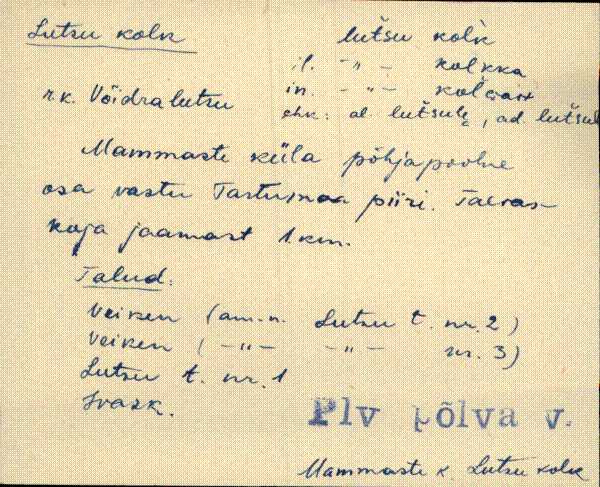 Lutsu kolk
lutšu kolk
il. - " - kolkka
in. - " -
r.k. Võidralutsu
ehk: al. lutšulę, ad. lutšul
Mammaste küla põhjapoolne
osa vastu Tartumaa piiri. Taevas-
koja jaamast 1 km.
Talud:
Veiken (am.n. Lutsu t. nr. 2)
Veiken ( - " - - " - nr. 3)
Lutsu t. nr. 1
Ivask.
Plv põlva v.
Mammaste k. Lutsu kolk